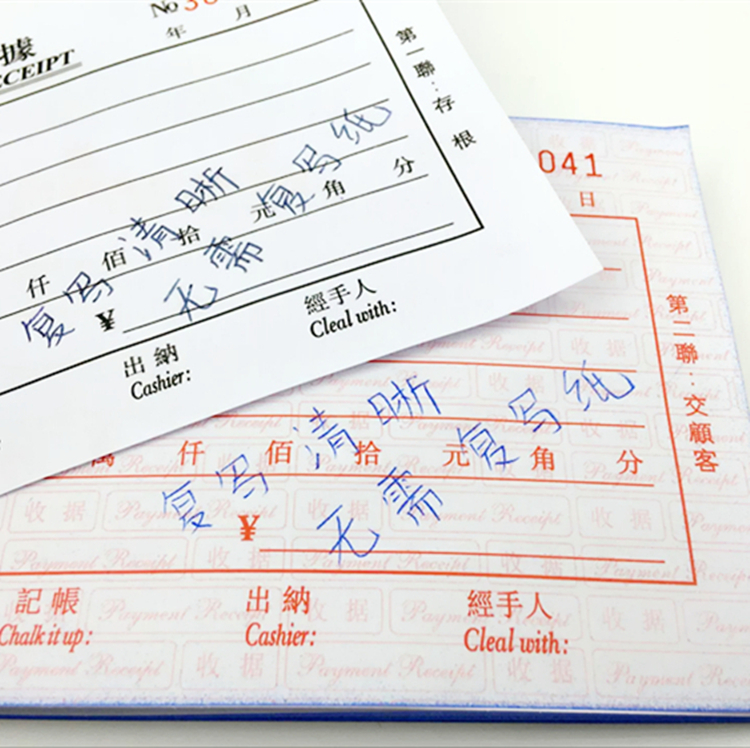 RECEIPT
No 3
年 月
第一聯：存根
复写清晰
无需复写纸
仟 佰 拾 元 角 分
¥
經手人
Cleal with:
出納
Cashier:
041
日
第二聯：交顧客
复写清晰
无需复写纸
萬 仟 佰 拾 元 角 分
¥
記帳
Chalk it up:
出納
Cashier:
經手人
Cleal with:
收据 Payment Receipt